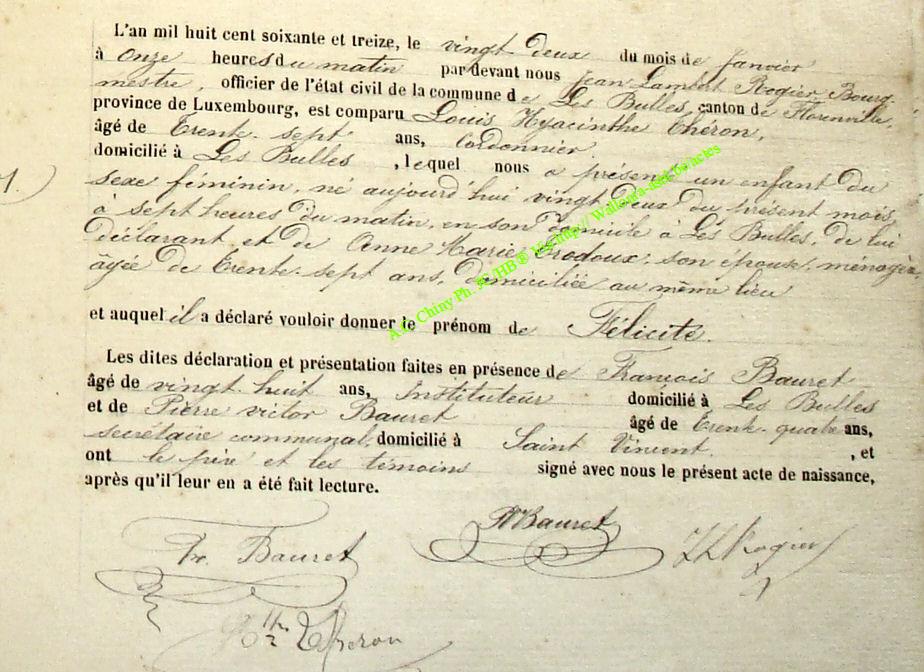 L'an mil huit cent soixante et treize, le vingt deux du mois de Janvier
à onze heures du matin par devant nous Jean Lambert Rogier Bourg-
mestre, officier de l'état civil de la commune de Les Bulles, canton de Florenville,
province de Luxembourg, est comparu Louis Hyacinthe Théron,
âgé de Trente-sept ans, Cordonnier
domicilié à Les Bulles, lequel nous a présenté un enfant du
sexe féminin, né aujourd'hui vingt deux du présent mois,
à sept heures du matin, en son domicile à Les Bulles, de lui
déclarant et de Anne Marie Brodoux, son épouse, ménagère
âgée de Trente-sept ans, domiciliée au même lieu
et auquel il a déclaré vouloir donner le prénom de Félicité.
Les dites déclaration et présentation faites en présence de François Bauret
âgé de vingt-huit ans, Instituteur domicilié à Les Bulles
et de Pierre victor Bauret âgé de Trente-quatre ans,
secrétaire communal, domicilié à Saint Vincent, et
ont le père et les témoins signé avec nous le présent acte de naissance,
après qu'il leur en a été fait lecture.
PVBauret
Fr. Bauret
JL Rogier
Théron